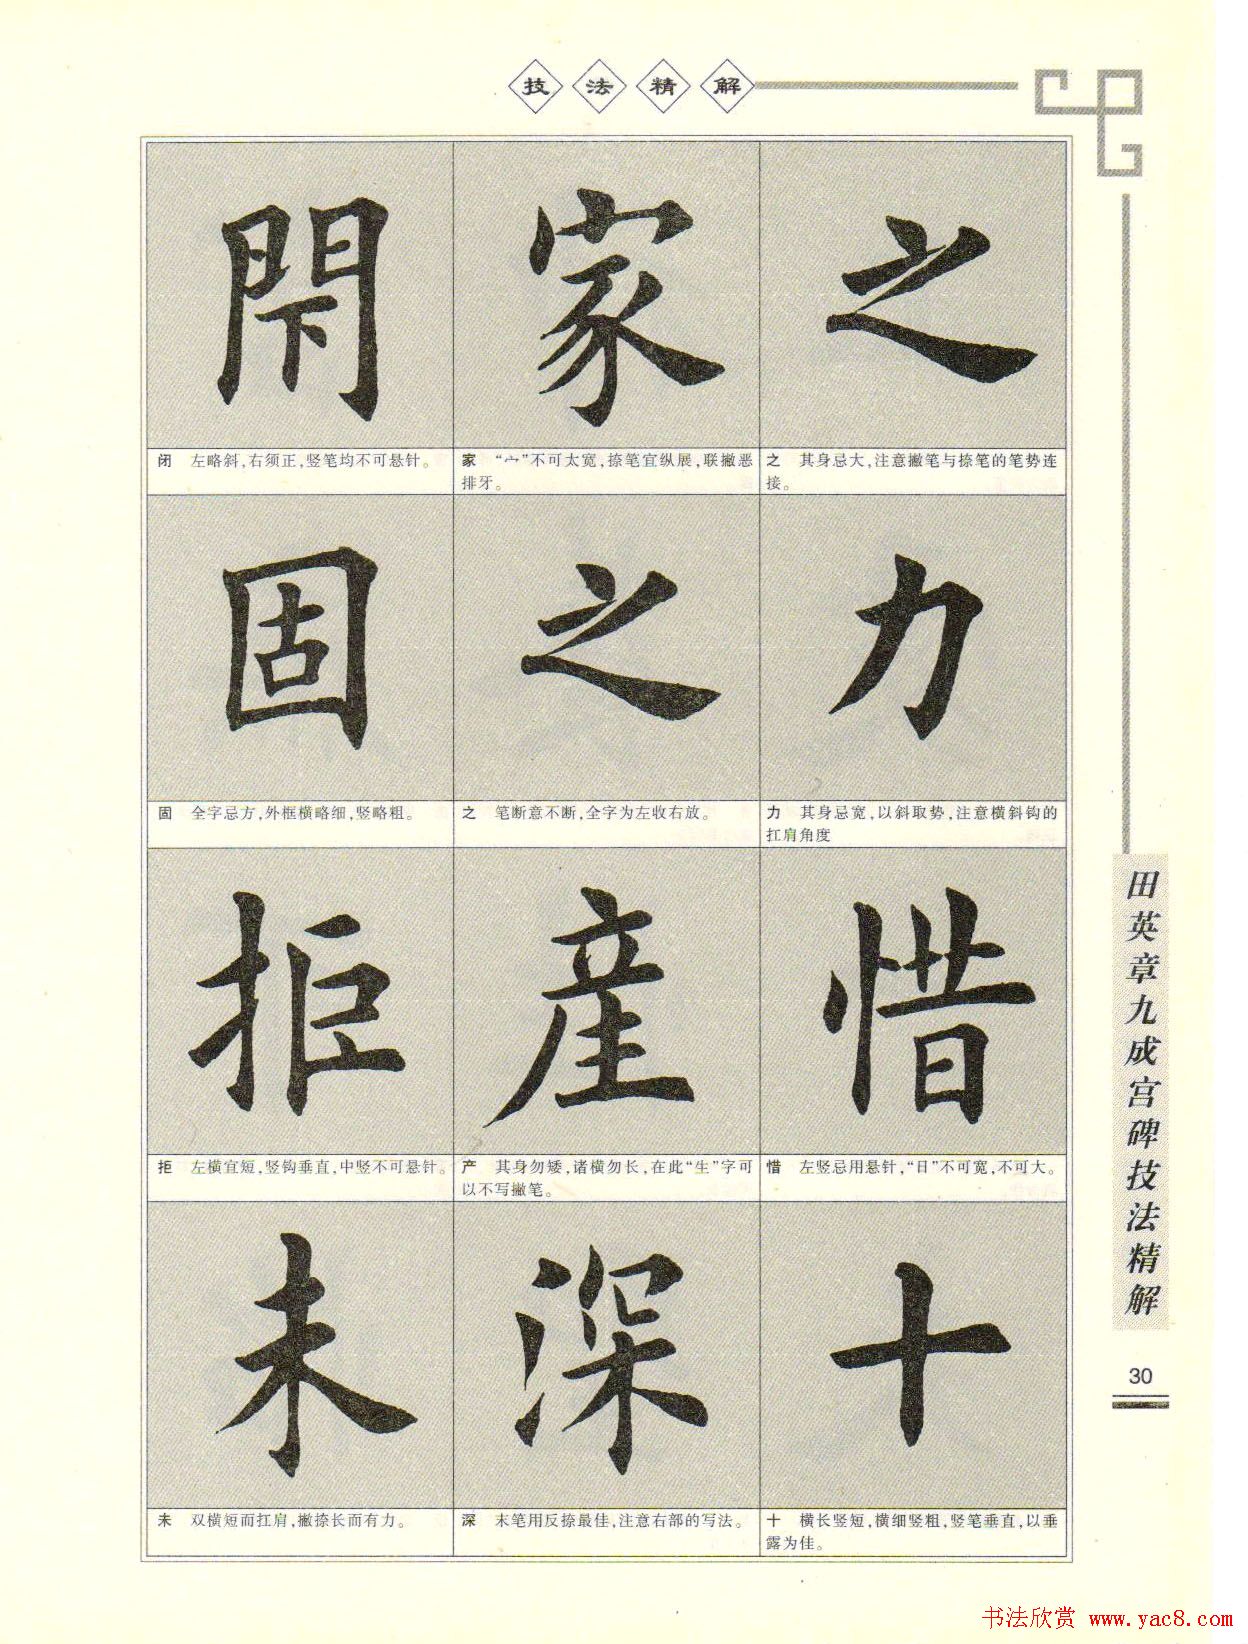 技法精解
閇 家 之
闭 左略斜,右须正,竖笔均不可悬针。
家 “宀”不可太宽,捺笔宜纵展,联撇恶
排牙。
之 其身忌大,注意撇笔与捺笔的笔势连
接。
固 之 力
固 全字忌方,外框横略细,竖略粗。
之 笔断意不断,全字为左收右放。
力 其身忌宽,以斜取势,注意横斜钩的
扛肩角度
拒 産 惜
拒 左横宜短,竖钩垂直,中竖不可悬针。
产 其身勿矮,诸横勿长,在此“生”字可
以不写撇笔。
惜 左竖忌用悬针,“日”不可宽,不可大。
未 深 十
未 双横短而扛肩,撇捺长而有力。
深 末笔用反捺最佳,注意右部的写法。
十 横长竖短,横细竖粗,竖笔垂直,以垂
露为佳。
田英章九成宫碑技法精解
30
书法欣赏 www.yac8.com